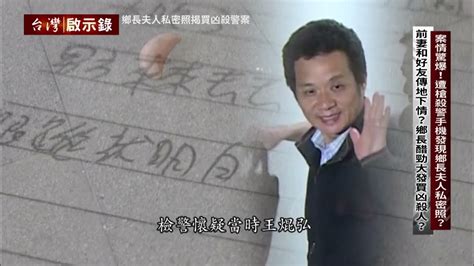 台灣啟示錄
鄉長夫人私密照揭買凶殺警案
案情驚爆！遭槍殺警手機發現鄉長夫人私密照？
前妻和好友傳地下情？鄉長醋勁大發買凶殺人？
檢警懷疑當時王焜弘